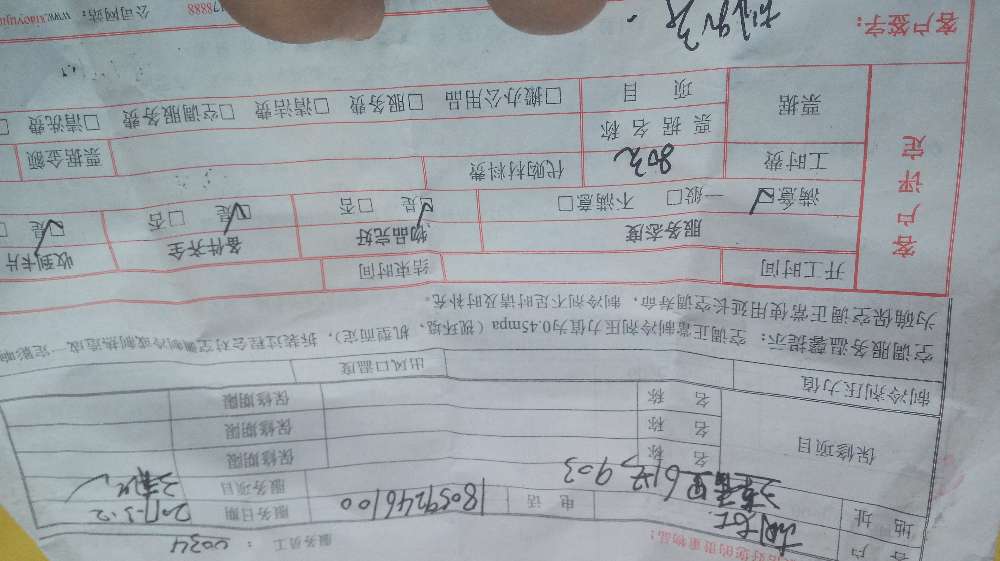 好您的贵重物品:
服务员工: 0034
户
电 话 18059246100 服务日期 2017.3.2
地 址 6坐903 服务项目
保修项目 名 称 保修期限
名 称 保修期限
名 称 保修期限
制冷剂压力值 出风口温度
空调服务温馨提示: 空调正常制冷剂压力值为0.45mpa(循环境、机型而定),拆装过程会对空调制冷或制热造成一定影响
为确保空调正常使用延长空调寿命,制冷剂不足时请及时补充。
客户评定
开工时间 结束时间
服务态度 物品完好 备件齐全 收到卡片
满意☑ 一般□ 不满意□ ☑是 □否 ☑是 □否 ☑是
工时费 80元 代购材料费
票据 票据名称 票据金额
项 目 □搬办公用品 □服务费 □清洁费 □空调服务费 □清洗费
客户签字:
78888 公司网站: www.xiaoyu